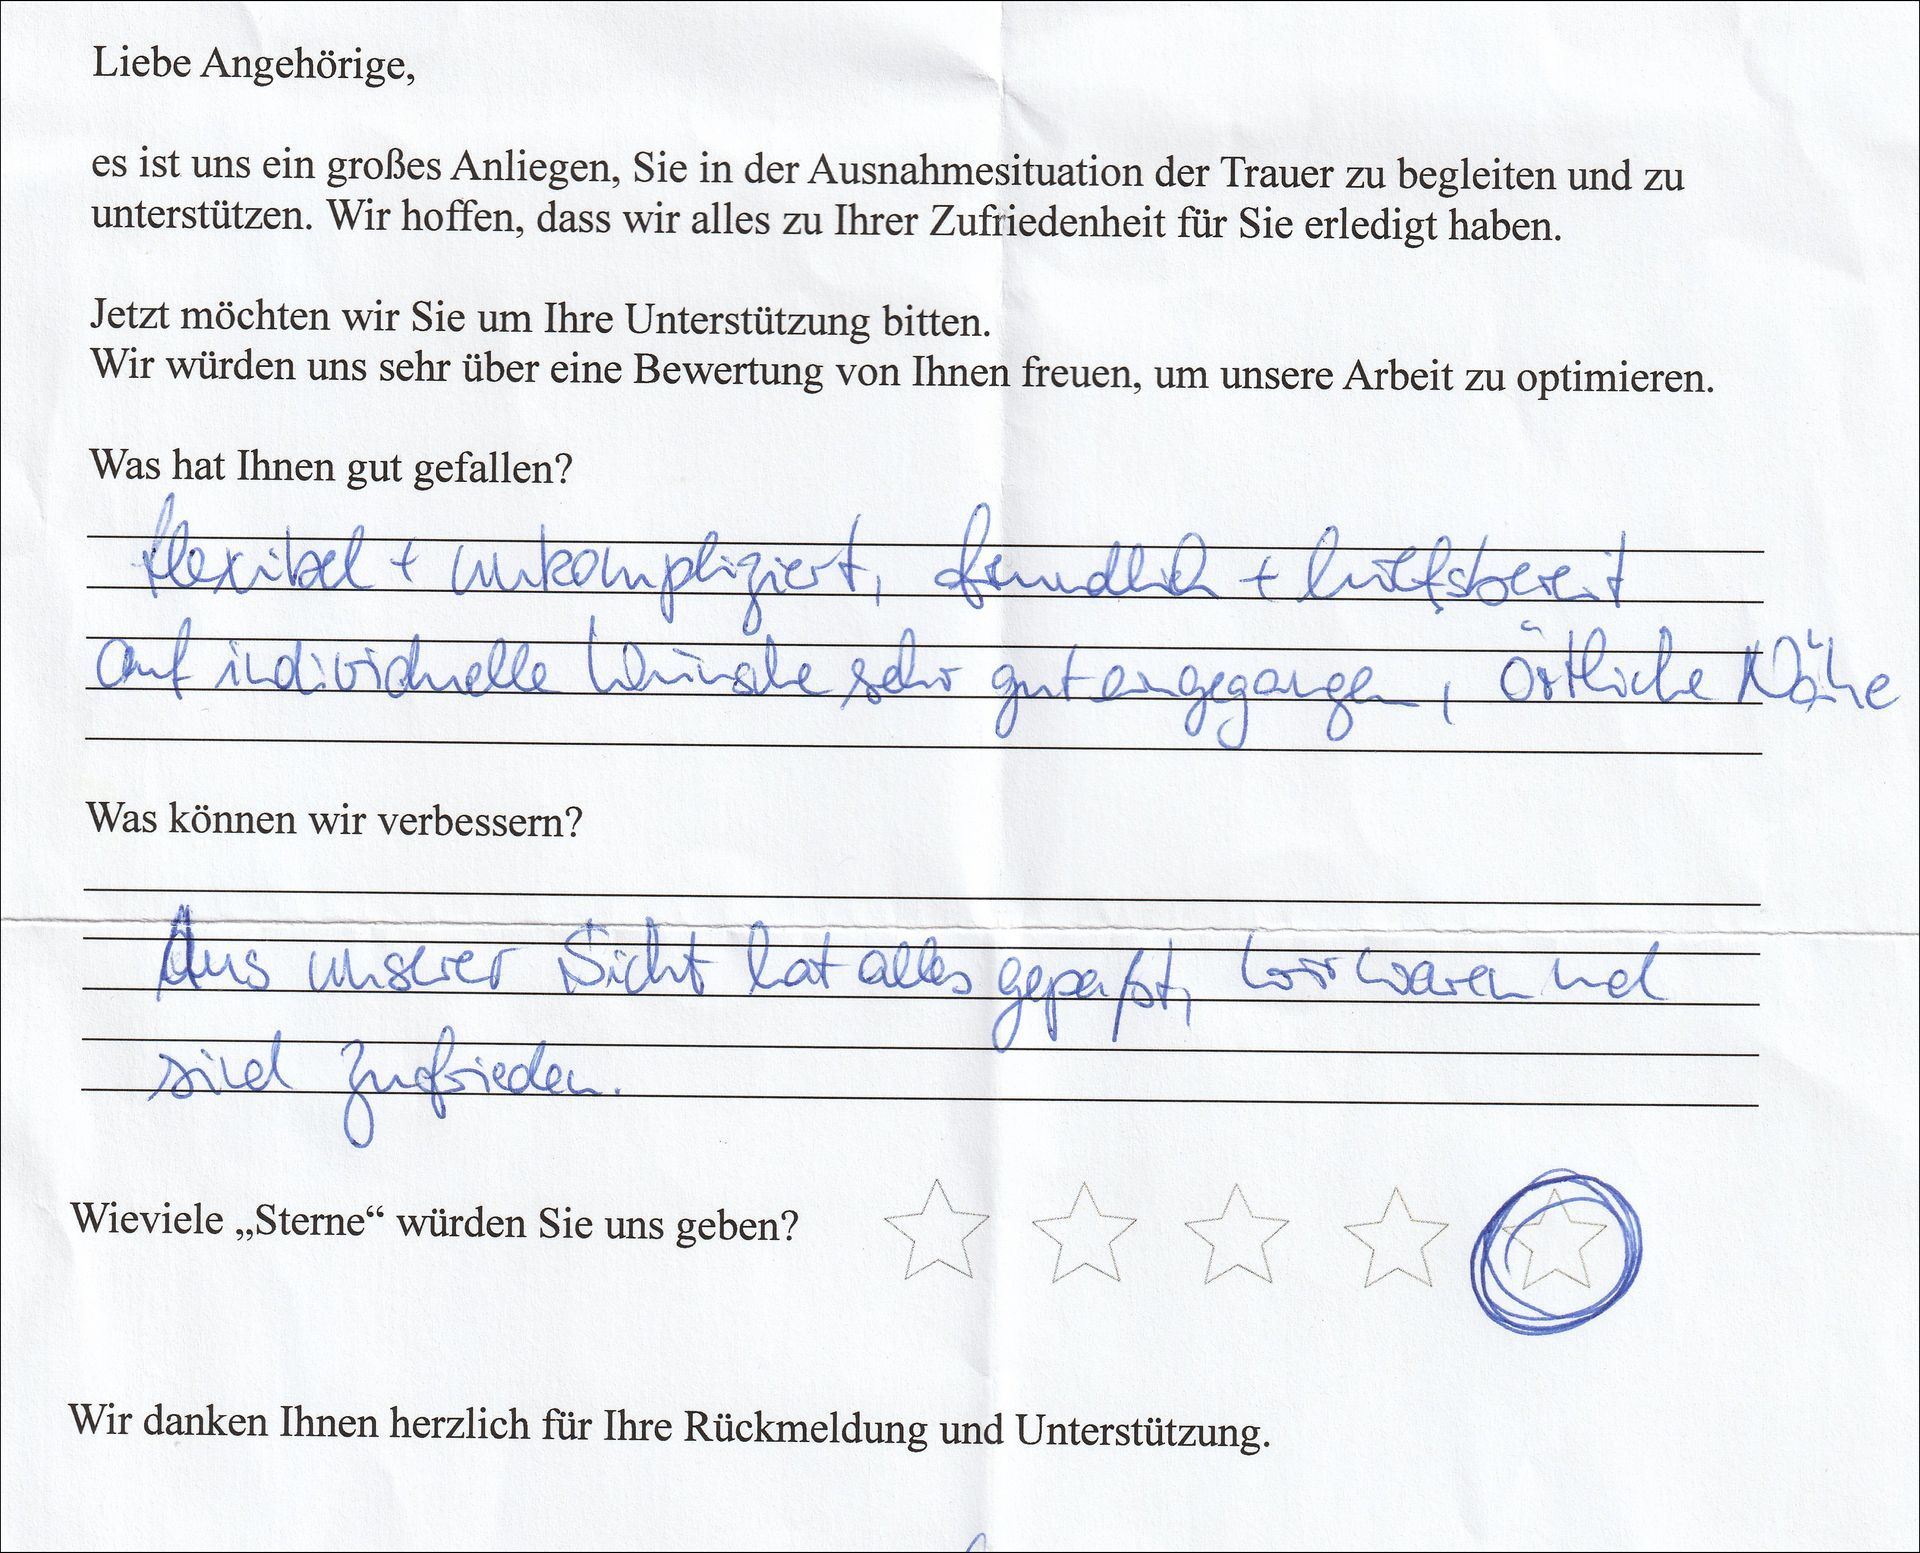 Liebe Angehörige,
es ist uns ein großes Anliegen, Sie in der Ausnahmesituation der Trauer zu begleiten und zu
unterstützen. Wir hoffen, dass wir alles zu Ihrer Zufriedenheit für Sie erledigt haben.
Jetzt möchten wir Sie um Ihre Unterstützung bitten.
Wir würden uns sehr über eine Bewertung von Ihnen freuen, um unsere Arbeit zu optimieren.
Was hat Ihnen gut gefallen?
flexibel + unkompliziert, freundlich + hilfsbereit
auf individuelle Wünsche sehr gut eingegangen, örtliche Nähe
Was können wir verbessern?
Aus unserer Sicht hat alles gepaßt, wir waren und
sind zufrieden.
Wieviele „Sterne“ würden Sie uns geben?
Wir danken Ihnen herzlich für Ihre Rückmeldung und Unterstützung.